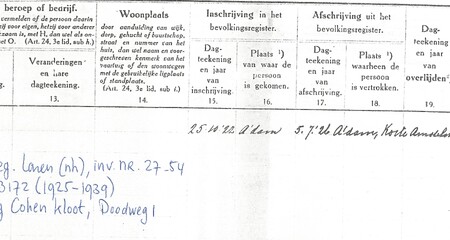 beroep of bedrijf.
vermelden of de persoon daarin
voor eigen, hetzij voor ander
naam is, met H, dan wel als on-
O. (Art. 24, 3e lid, sub h.)
Veranderingen
en hare
dagteekening.
13.
Woonplaats
door aanduiding van wijk,
dorp, gehucht of buurtschap,
straat en nummer van het
huis, dan wel naam en voor-
geschreven kenmerk van het
vaartuig of den woonwagen
met de gebruikelijke ligplaats
of standplaats.
(Art. 24, 3e lid, sub k.)
14.
Inschrijving in het
bevolkingsregister.
Dag-
teekening
en jaar
van
inschrijving.
15.
Plaats ¹)
van waar de
persoon
is gekomen.
16.
Afschrijving uit het
bevolkingsregister.
Dag-
teekening
en jaar
van
afschrijving.
17.
Plaats ¹)
waarheen de
persoon
is vertrokken.
18.
Dag-
teekening
en jaar
van
overlijden
19.
25 10 '22 A'dam 5.7.'26 A'dam, Korte
eg. Laren (nh), inv. nr. 27-54
3172 (1925-1939)
g Cohen kloot, Doodweg 1